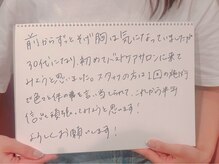 前からずっとそげ胸は気になっていましたが
30代になり、初めてバストケアサロンに来て
みようと思いました。スタッフの方は1回の施術
で色々と体の事を言い当てられて、これから半年
信じて頑張ってみようと思います！
よろしくお願いします！